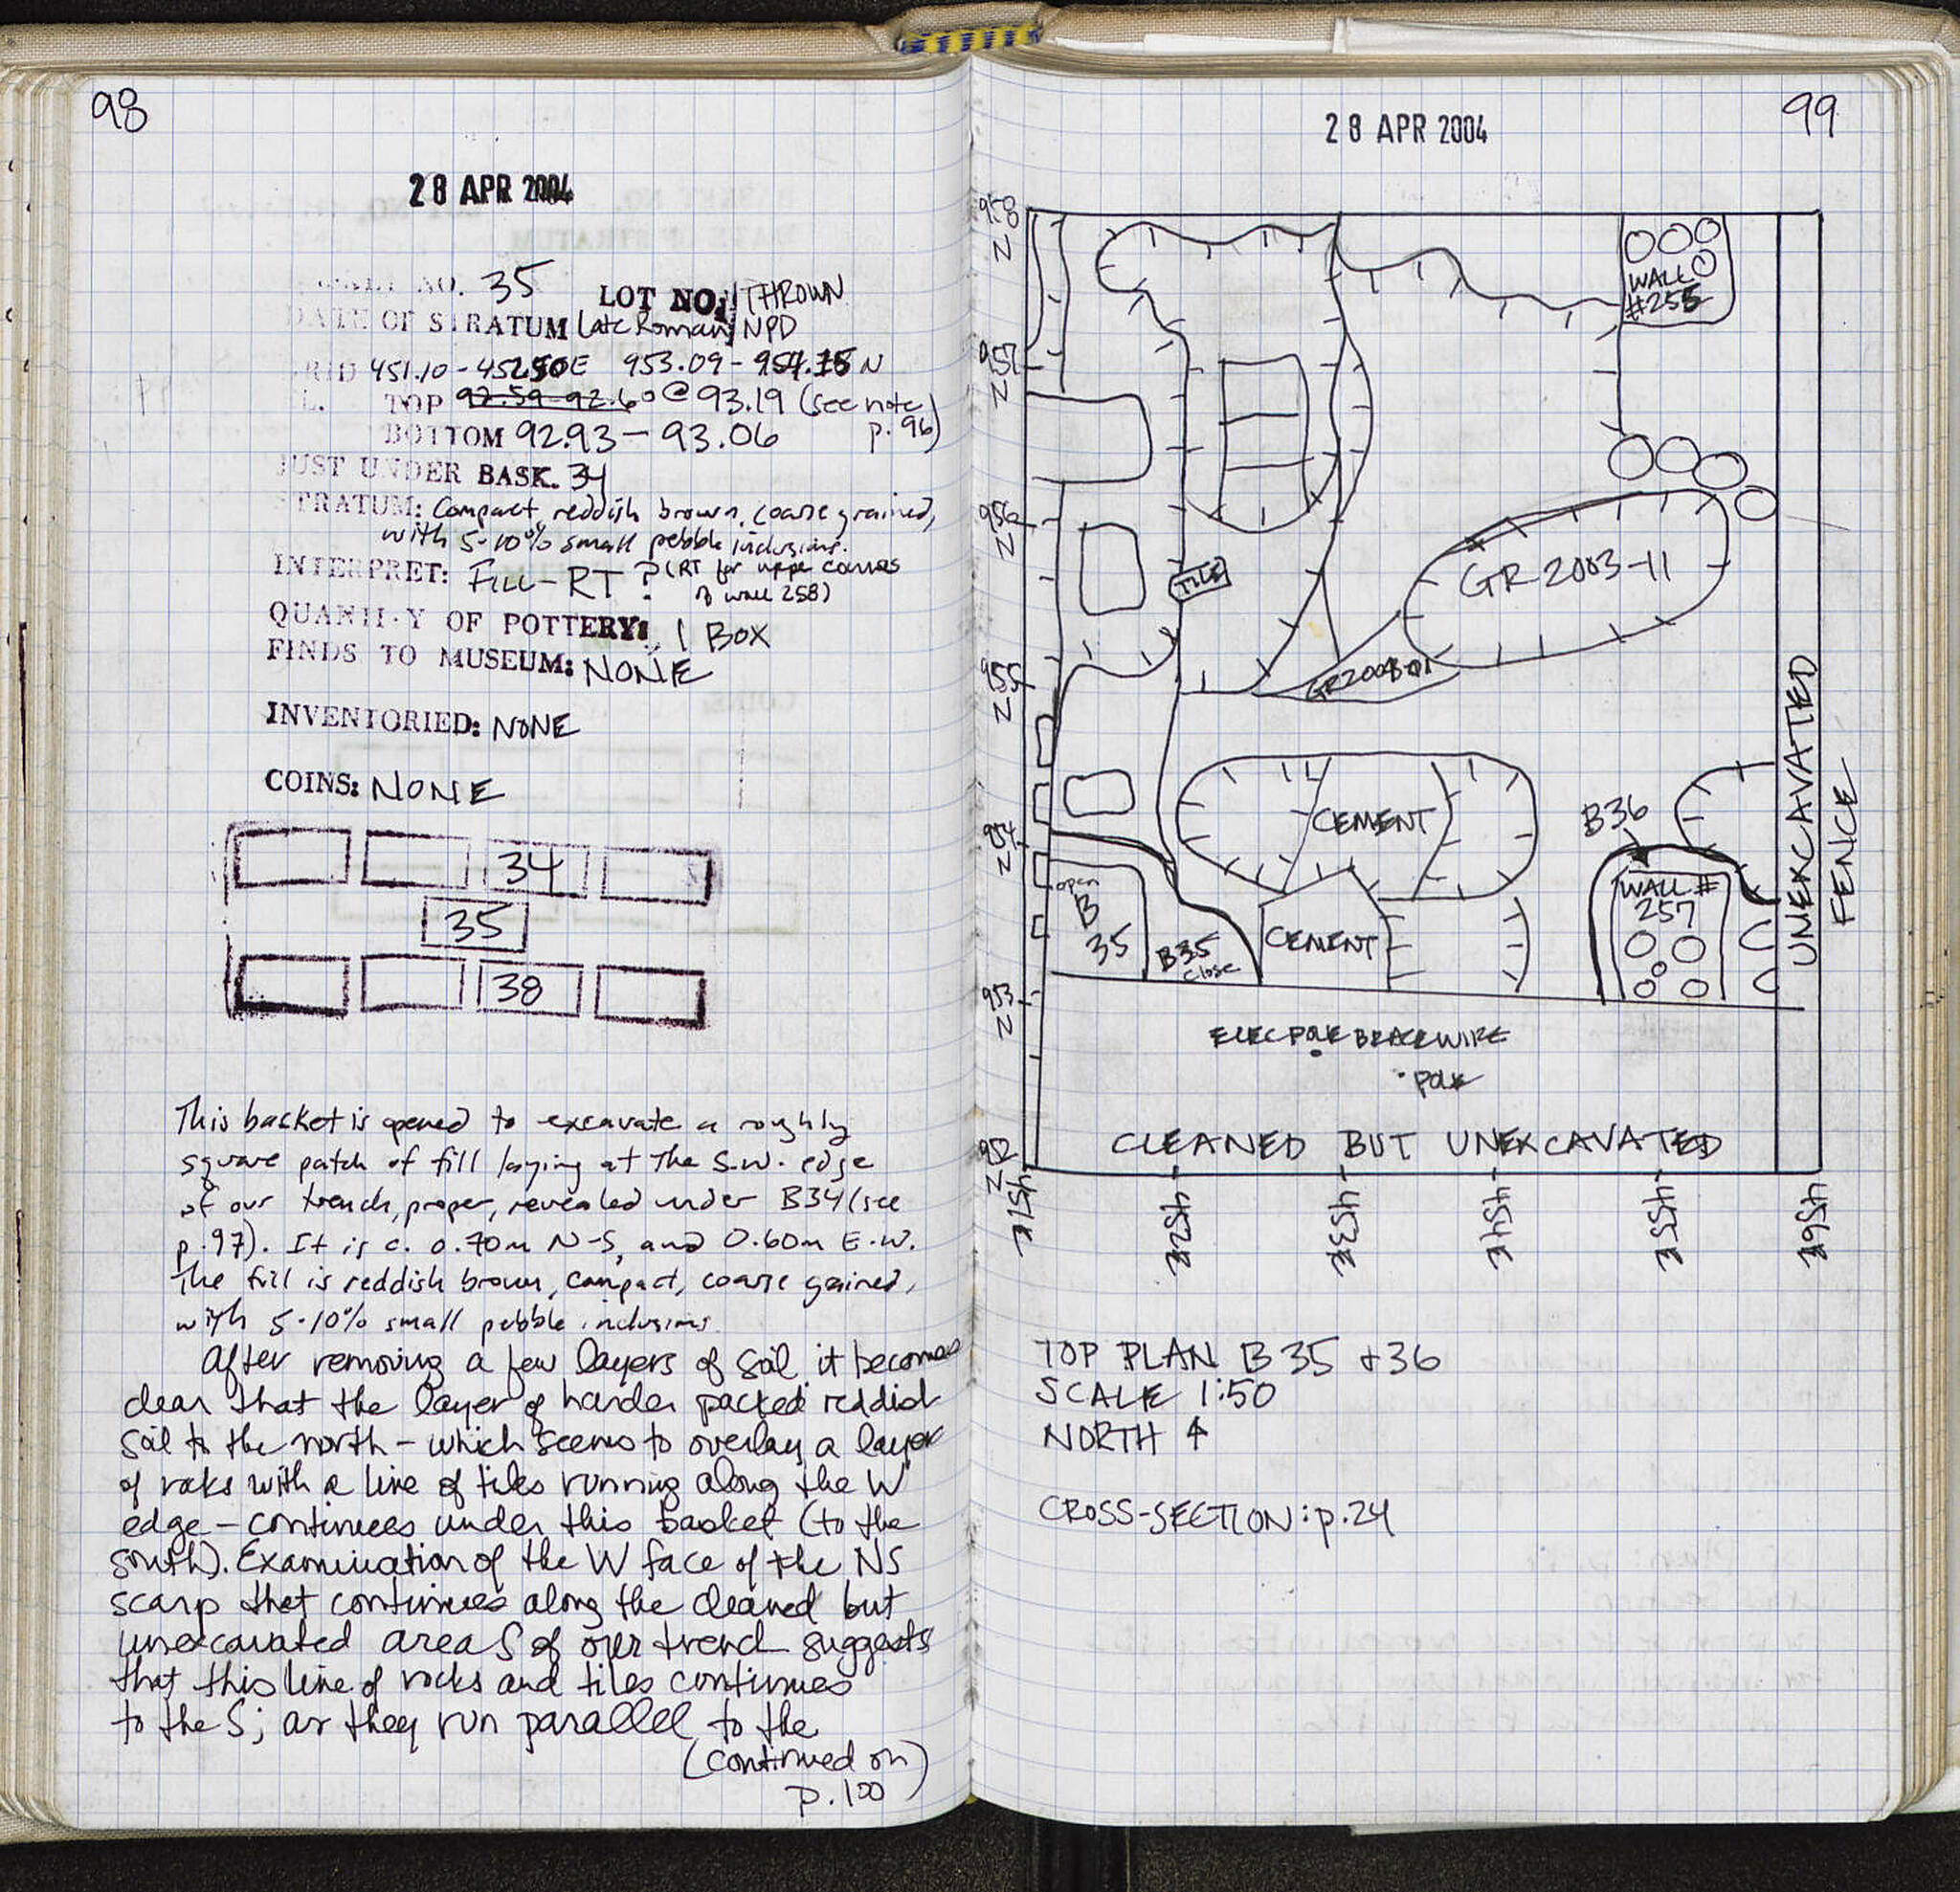 98
28 APR 2004
NO. 35 LOT NO: THROWN
DATE OF STRATUM Late Roman/NPD
GRID 451.10-452.50E 953.09-954.15 N
TOP 92.59-92.60 @ 93.19 (see note
BOTTOM 92.93 - 93.06 p. 96)
JUST UNDER BASK. 34
STRATUM: Compact reddish brown, coarse grained,
with 5-10% small pebble inclusions.
INTERPRET: FILL-RT? (RT for upper courses
of wall 258)
QUANTITY OF POTTERY: 1 BOX
FINDS TO MUSEUM: NONE
INVENTORIED: NONE
COINS: NONE
34
35
38
This basket is opened to excavate a roughly
square patch of fill laying at the S.W. edge
of our trench, proper, revealed under B34 (see
p. 97). It is c. 0.70m N-S, and 0.60m E-W.
The fill is reddish brown, compact, coarse grained,
with 5-10% small pebble inclusions.
After removing a few layers of soil, it becomes
clear that the layer of harder packed reddish
soil to the north - which seems to overlay a layer
of rocks with a line of tiles running along the W
edge - continues under this basket (to the
south). Examination of the W face of the NS
scarp that continues along the cleaned but
unexcavated area S of our trench suggests
that this line of rocks and tiles continues
to the S; as they run parallel to the
(continued on)
p. 100
99
28 APR 2004
958 N
957 N
956 N
955 N
954 N
953 N
952 N
WALL
#255
GR 2003-11
TILE
CEMENT
B36
open
B
35
B35
close
CEMENT
WALL #
257
UNEXCAVATED
FENCE
ELEC POLE BRACE WIRE
POLE
CLEANED BUT UNEXCAVATED
451E
452E
453E
454E
455E
456E
TOP PLAN B 35 + 36
SCALE 1:50
NORTH ↑
CROSS-SECTION: p. 24